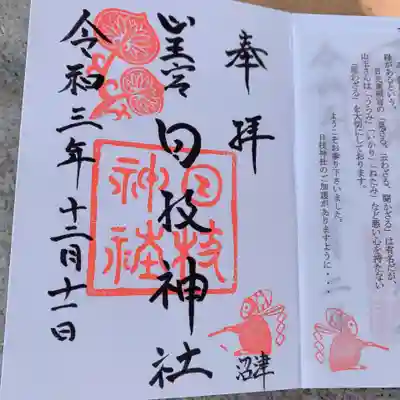 があるという。
日光東照宮の「見ざる、言わざる、聞かざる」は有名だが、
山王さんは「うらみ」「いかり」「ねたみ」など悪い心を持たない
ざる」を大切にしております。
ようこそお参り下さいました。
日枝神社のご加護がありますように・・・
奉拝
沼津
山王宮
日枝神社
日枝
神社
令和三年十二月十一日